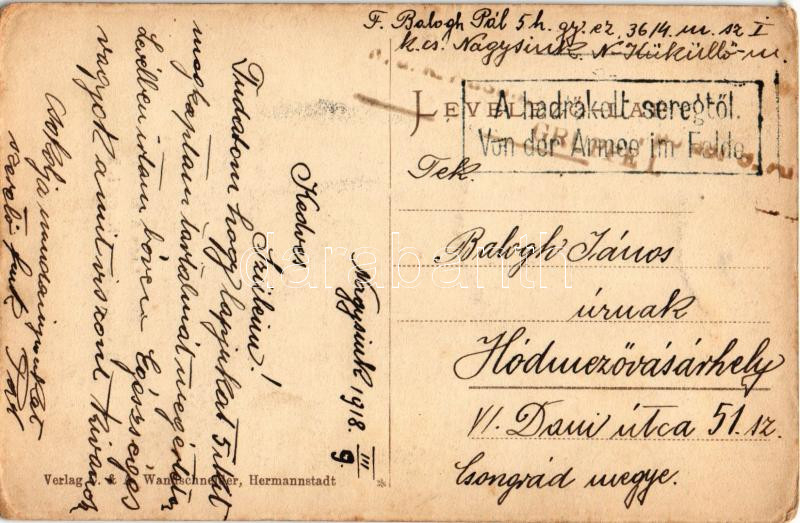 F. Balogh Pál 5. h. gy. ez. 36/4. m. sz. I
k. cs. Nagysink N-Küküllő-m.
LEVELEZŐ-LAP
A hadrakelt seregtől.
Von der Armee im Felde.
Tek.
Balogh János
úrnak
Hódmezővásárhely
VI. Dani útca 51. sz.
Csongrád megye.
Nagysink 1918. III/9.
Kedves
Szüleim!
Tudatom hogy lapjukat
megkaptam tartalmát megértettem
Levélben írtam bőven Egészséges
vagyok amit viszont kivánok
Csókolja mindanyiukat
szerető fiuk Pál
Verlag Wandschneider, Hermannstadt
darabanth